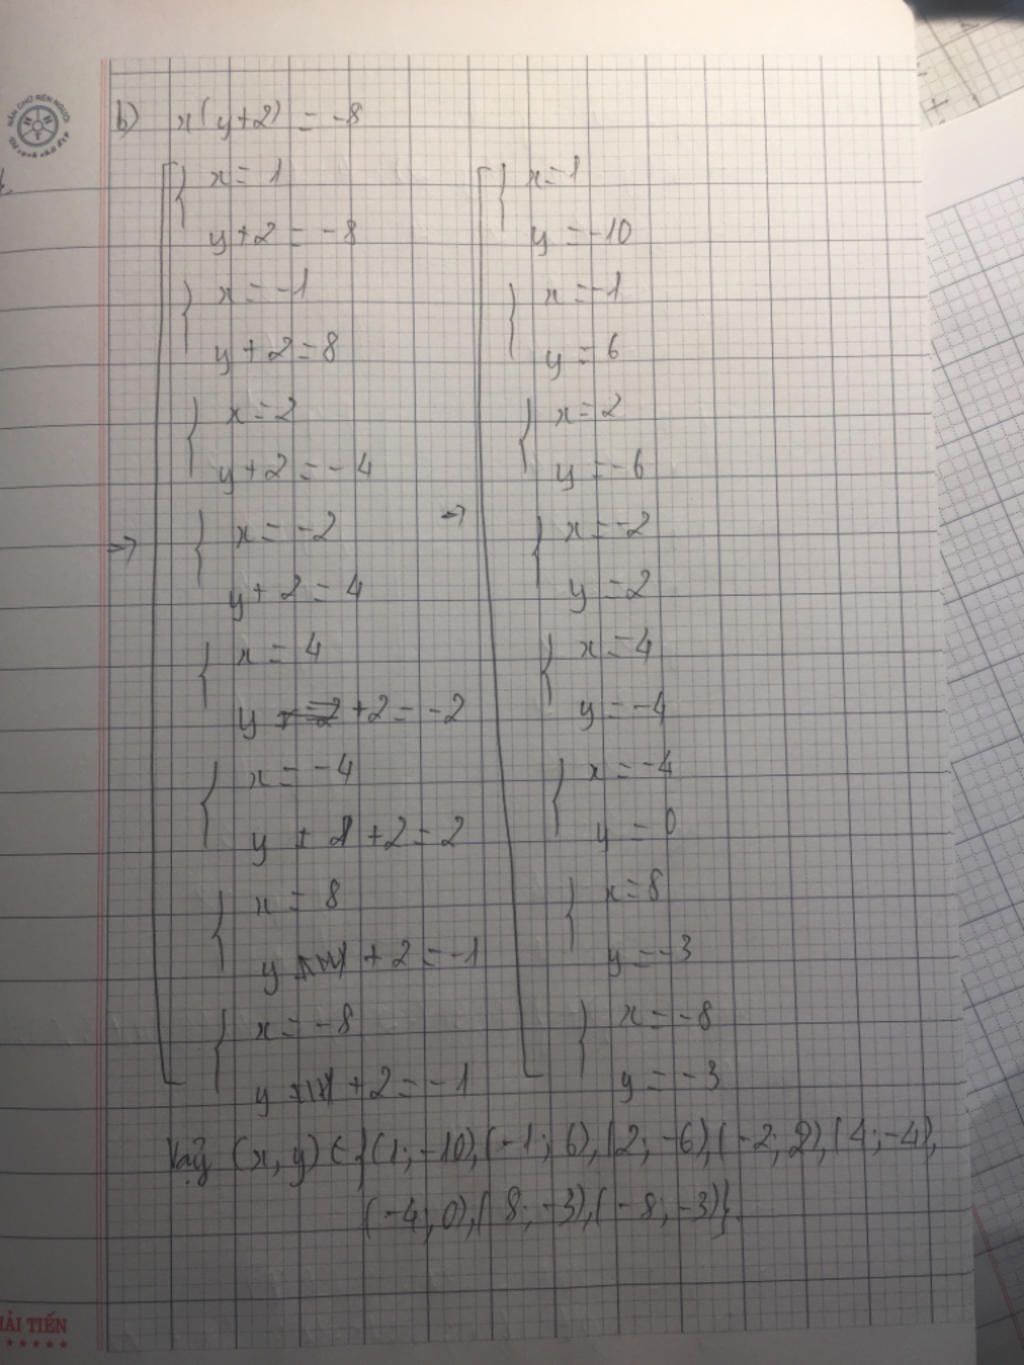 b) x(y+2) = -8
x = 1
y + 2 = -8
x = -1
y + 2 = 8
x = 2
y + 2 = -4
→ x = -2
y + 2 = 4
x = 4
y + 2 = -2
x = -4
y + 2 = 2
x = 8
y + 2 = -1
x = -8
y + 2 = -1
x = 1
y = -10
x = -1
y = 6
x = 2
y = -6
→ x = -2
y = 2
x = 4
y = -4
x = -4
y = 0
x = 8
y = -3
x = -8
y = -3
Vậy (x, y) ∈ {(1; -10), (-1; 6), (2; -6), (-2; 2), (4; -4),
(-4; 0), (8; -3), (-8; -3)}.
HẢI TIẾN